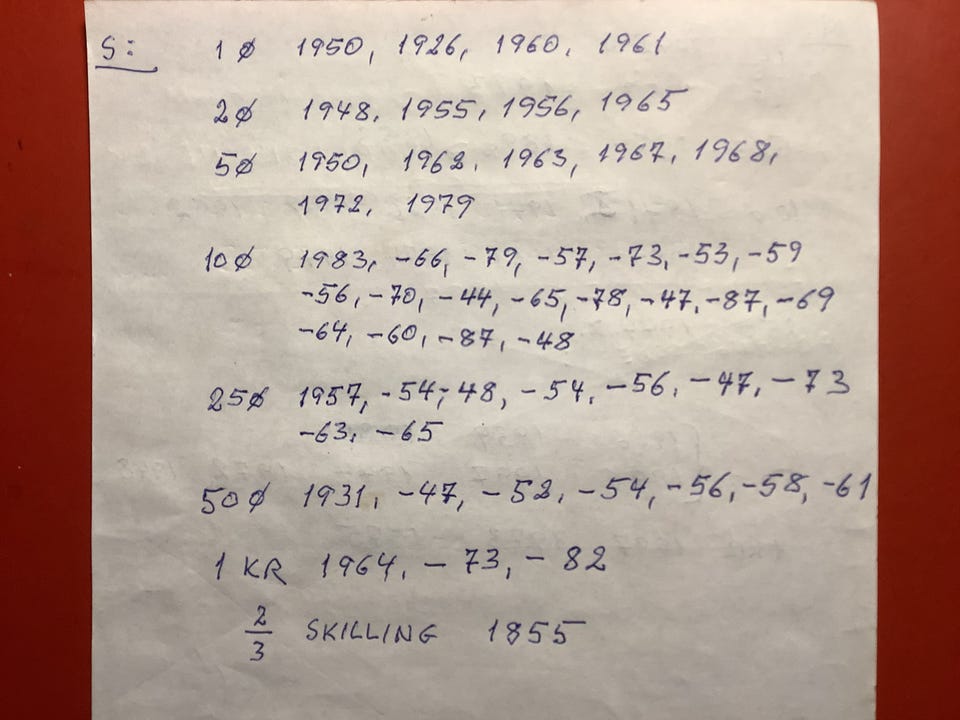 S: 1 Ø 1950, 1926, 1960, 1961
2Ø 1948, 1955, 1956, 1965
5Ø 1950, 1962, 1963, 1967, 1968,
1972, 1979
10Ø 1983, -66, -79, -57, -73, -53, -59
-56, -70, -44, -65, -78, -47, -87, -69
-64, -60, -87, -48
25Ø 1957, -54, -48, -54, -56, -47, -73
-63, -65
50Ø 1931, -47, -52, -54, -56, -58, -61
1 KR 1964, -73, -82
2/3 SKILLING 1855